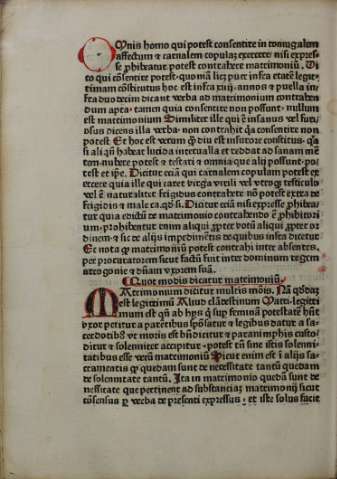 Omnis homo qui potest consentire in coniugalem
affectum & carnalem copulaȝ exercere nisi expres-
se ꝓhibeatur potest contrahere matrimoniū. Di
to qui cōsentire potest · quo mā licȝ puer infra etatē legit-
timam cōstitutus hoc est infra xiiij · annos & puella in-
fra duodecim dicant verba ad matrimonium contrahen
dum apta · tamen quia consentire non possunt · nullum
est matrimonium Similiter ille qui ē insanus vel furi-
osus dicens illa verba · non contrahit ꝗa cōsentire non
potest Et hoc est verum ꝙ diu est in furore cōstitus · ꝗa
si aliqñ habeat lucida interualla et redeat ad sanam mē-
tem · nubere potest & testari & omnia que alij possunt · po-
test et ip̄e. Dicitur eciā qui carnalem copulam potest ex
ercere quia ille qui caret virga virili vel vtroqȝ testiculo
vel ē naturaliter frigidus contrahere nō potest extra de
frigidis & male Dicitur eciā nisi expresse ꝓhibea-
tur quia edictū de matrimonio contrahendo ē ꝓhibitori
um · prohibentur enim aliqui ꝓpter votū aliqui ꝓpter or
dinem & sic de alijs impedimētis de quibus infra dicetur
Et nota ꝙ matrimoniū potest contrahi inter absentes,
per procuratorem sicut factū fuit inter dominum regem
et dn̄am vxorem suā.
Quot modis dicatur matrimoniū.
Matrimonium dicitur multis modis. Nā ꝙ̄daȝ
est legittimū Aliud clādestinum Matri-legitti
mum est qñ ab hijs qui sup feminam potestatē hn̄t
vxor petitur a parētibus spōsatur & legibus datur a sa-
cerdotibȝ vt moris est bn̄dicitur & paranimphis custo
ditur & solemniter accipitur · potest tn̄ sine istis solenni-
tatibus esse verū matrimoniū Sicut enim est ī alijs sacra-
mentis ꝙ quedam sunt de necessitate tantū quedam
de solemnitate tantū. Ita in matrimonio quedā sunt de
necessitate que pertinent ad substanciaȝ matrimonij sicut
cōsensus ꝑ verba de presenti expressus · et iste solus facit